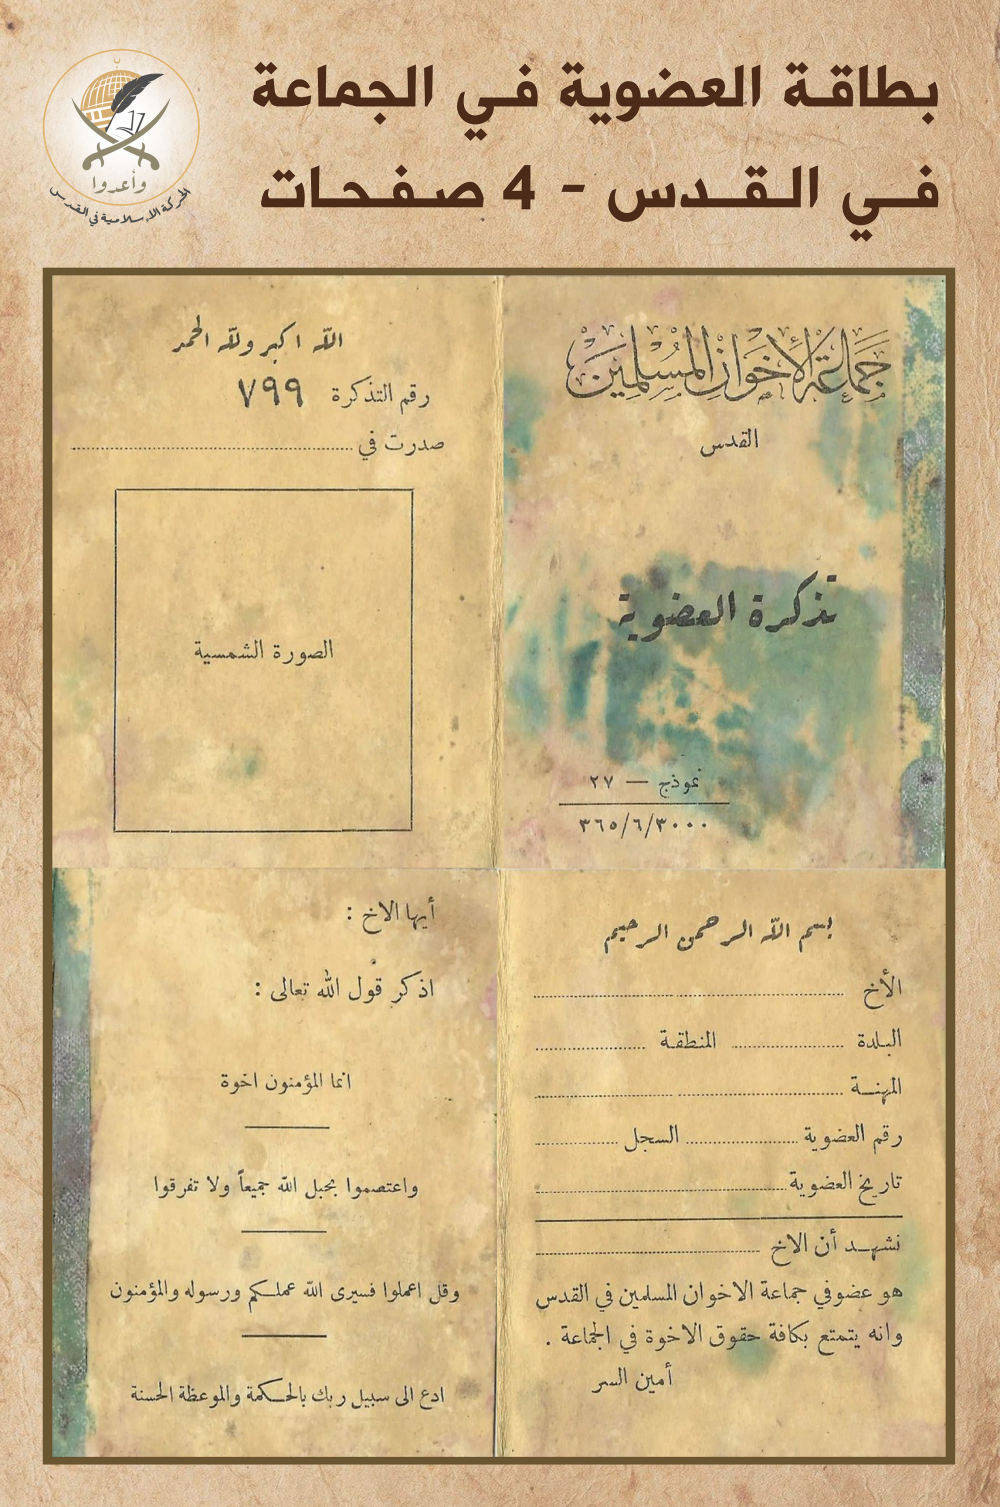 بطاقة العضوية في الجماعة
في القدس - 4 صفحات
وأعدوا
الحركة الإسلامية في القدس
جماعة الأخوان المسلمين
القدس
تذكرة العضوية
نموذج — ٢٧
٣٦٥/٦/٣٠٠٠
الله اكبر ولله الحمد
رقم التذكرة ٧٩٩
صدرت في
الصورة الشمسية
بسم الله الرحمن الرحيم
الأخ
البلدة المنطقة
المهنة
رقم العضوية السجل
تاريخ العضوية
نشهد أن الاخ
هو عضو في جماعة الاخوان المسلمين في القدس
وانه يتمتع بكافة حقوق الاخوة في الجماعة .
أمين السر
أيها الاخ :
اذكر قول الله تعالى :
انما المؤمنون اخوة
واعتصموا بحبل الله جميعاً ولا تفرقوا
وقل اعملوا فسيرى الله عملكم ورسوله والمؤمنون
ادع الى سبيل ربك بالحكمة والموعظة الحسنة